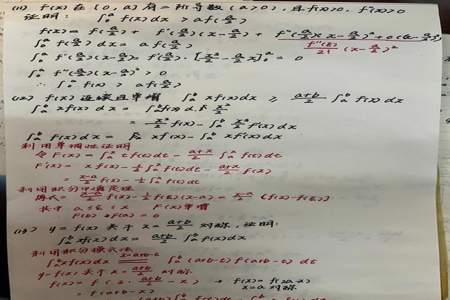 (11) f(x) 在 [0, a] 有二阶导数 (a>0), 且 f(x)>0, f''(x)>0
证明: ∫₀ᵃ f(x)dx > af(a/2)
f(x) = f(a/2) + f'(a/2)(x-a/2) +
∫₀ᵃ f(a/2) dx = a f(a/2)
∫₀ᵃ f'(a/2)(x-a/2) = f'(a/2)·[x²/2 - a/2 x]₀ᵃ = 0
∫₀ᵃ f''(x-a/2)² > 0
∴ ∫₀ᵃ f(x) > a f(a/2)
(12) f(x) 连续且单增 ∫ₐᵇ xf(x)dx ≥ a+b/2 ∫ₐᵇ f(x)dx
∫ₐᵇ xf(x)dx = ∫ₐᵇ f(x) d x²/2
= x²/2 f(x) - ∫ₐᵇ x²/2 f'(x)dx
∫ₐᵇ f(x)dx = xf(x) - ∫ₐᵇ xf'(x)dx
利用单调性证明
令 F(x) = ∫ₐˣ tf(t)dt - a+x/2 ∫ₐˣ f(t)dt
F'(x) = xf(x) - 1/2 ∫ₐˣ f(t)dt - a+x/2 f(x)
= x-a/2 f(x) - 1/2 ∫ₐˣ f(t)dt
利用积分中值定理
原式 = x-a/2 f(x) - 1/2 f(ξ)(x-a) = x-a/2 (f(x)-f(ξ))
其中 a ≤ ξ ≤ x F(x)单增
F(b) ≥ F(a) = 0
(13) y = f(x) 关于 x = a+b/2 对称, 证明:
∫ₐᵇ xf(x)dx = a+b/2 ∫ₐᵇ f(x)dx
利用积分换元法
∫ₐᵇ xf(x)dx ∫ₐᵇ (a+b-t) f(a+b-t) dt
y=f(x) 关于 x = a+b/2 对称
f(x) = f(2·a+b/2 - x) f(x) = f(2a-x)
= f(a+b-x) x=a 对称